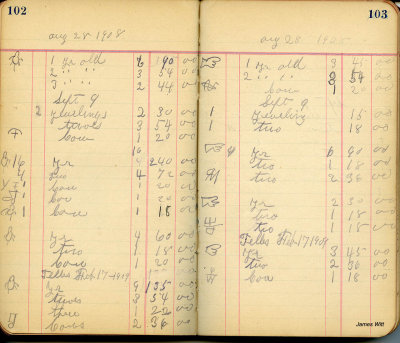 102
aug 28 1908
1 yr old 190 00
2 " " " 3 54 00
3 2 44 00
Sept 9
2 yearlings 2 30 00
twoes 3 54 00
cow 1 20 00
16
yr 240 00
two 4 72 00
cow 1 20 00
cow 1 20 00
cow 1 18 00
yr 4 60 00
two 1 18 00
cow 1 20 00
Feb 17 1909
yr 9 135 00
twoes 3 54 00
three 1 22 00
cows 2 36 00
103
aug 28 1908
1 yr old 3 45 00
2 " " " 3 54 00
cow 1 20 00
Sept 9
1 yearling 15 00
1 two 18 00
yr 6 90 00
two 1 18 00
two 2 36 00
yr 2 30 00
two 1 18 00
two 1 18 00
Feb 17 1909
yr 3 45 00
two 2 36 00
cow 1 18 00
James Witt